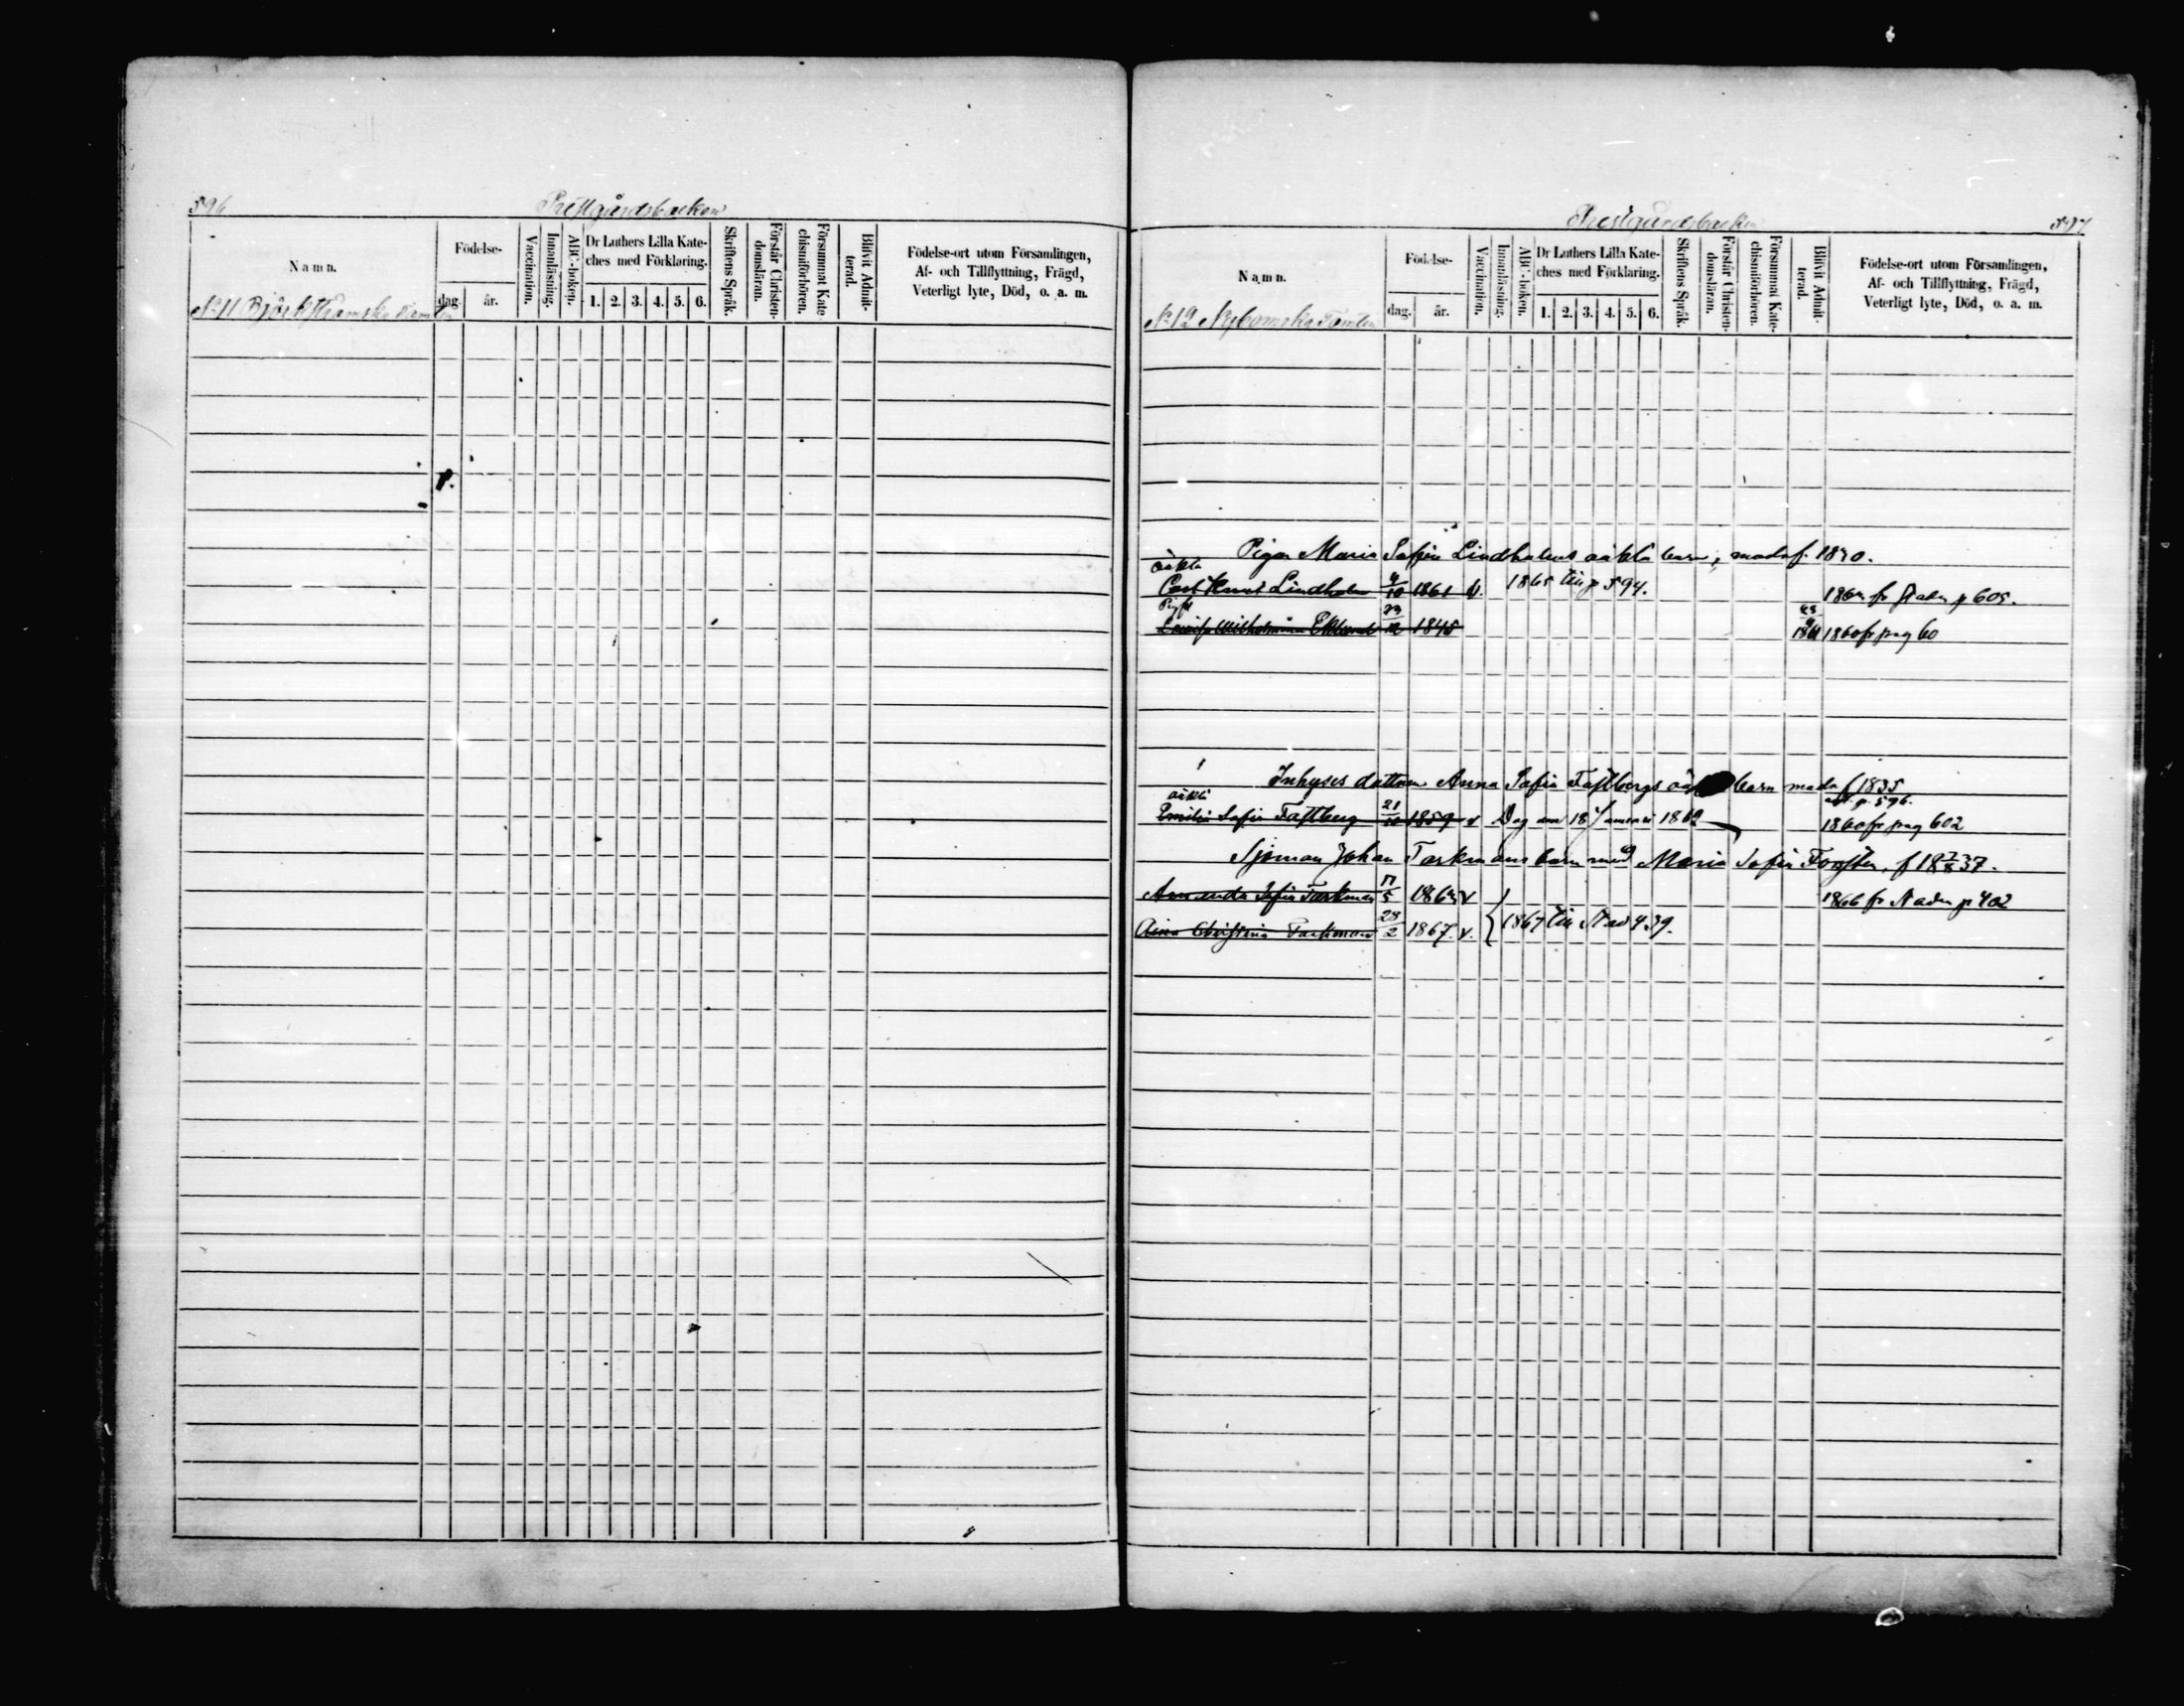 596
Prestgårdsbacken
Namn.
Födelse-
dag.
år.
Vaccination.
Innanläsning.
ABC-boken.
Dr Luthers Lilla Kate-
ches med Förklaring.
1. 2. 3. 4. 5. 6.
Skriftens Språk.
Förstår Christen-
domsläran.
Försummat Kate
chismiförhören.
Blifvit Admit-
terad.
Födelse-ort utom Församlingen,
Af- och Tillflyttning, Frägd,
Veterligt lyte, Död, o. a. m.
No 11 Björkströmska Familen
Prestgårdsbacken
597
Namn.
Födelse-
dag.
år.
Vaccination.
Innanläsning.
ABC-boken.
Dr Luthers Lilla Kate-
ches med Förklaring.
1. 2. 3. 4. 5. 6.
Skriftens Språk.
Förstår Christen-
domsläran.
Försummat Kate-
chismiförhören.
Blifvit Admit-
terad.
Födelse-ort utom Församlingen,
Af- och Tillflyttning, Frägd,
Veterligt lyte, Död, o. a. m.
No 12 Nybomska Familen
Pigan Maria Sofia Lindholms oäkta barn, modr f. 1830.
oäkta
Carl Knut Lindholm 4/10 1861 v. 1865 till p 594. fr Stadn p 605.
Pig
Lovisa Wilhelmina Eklund 1845 1861 1860 fr pag 60
Inhyses dottren Anna Sofia Fastbergs barn modr f 1835
oäkta p. 596.
Emilia Sofia Fastberg 21/10 1859 v Dog den 18 Januari 1862 1860 fr pag 602
Sjöman Johan Tarkmans barn med Maria Sofia f 18 7/8 37.
Amanda Sofia Tarkman 17/5 v 1866 fr Stadn p 402
Aina Christina Tarkman 28/2 1867. v. 1867 till Stad 439.